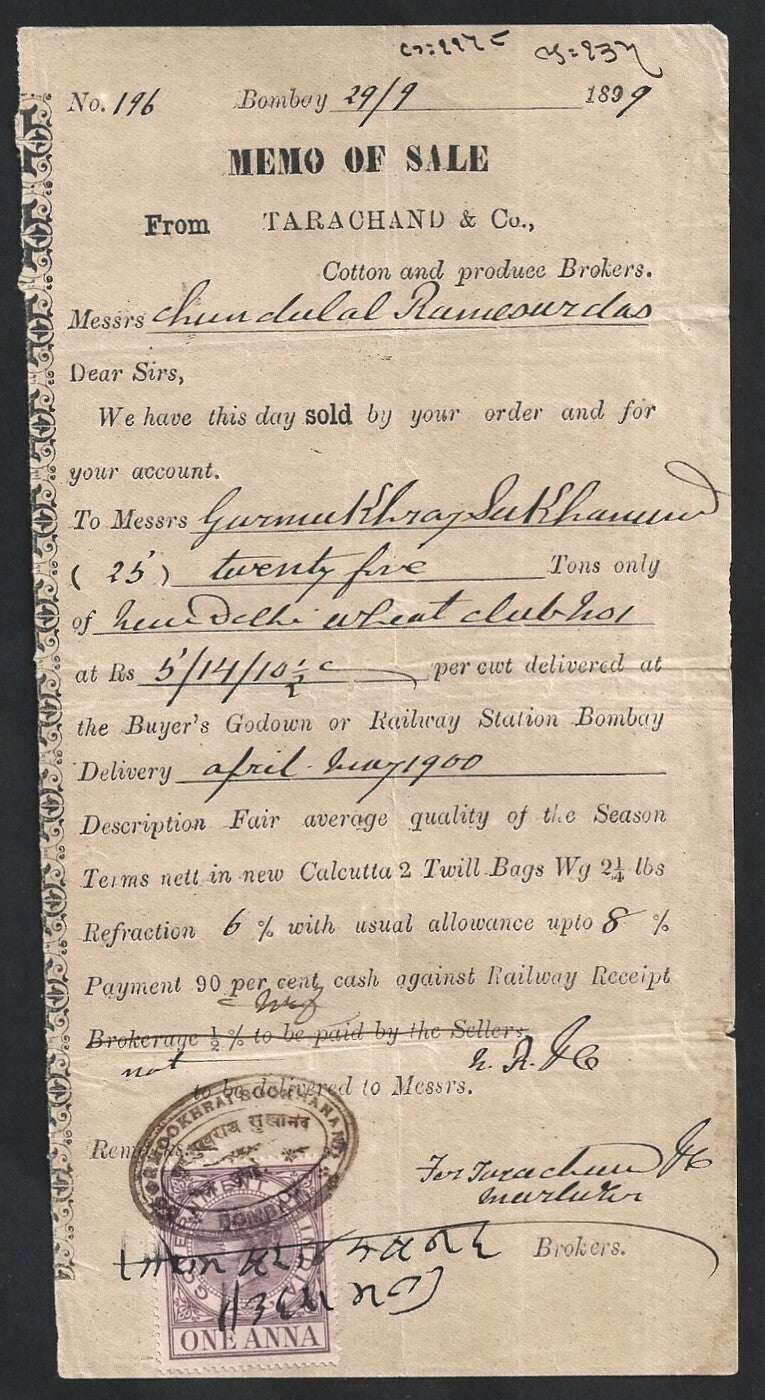 No. 196 Bombay 29/9 1899
MEMO OF SALE
From TARACHAND & Co.,
Cotton and produce Brokers.
Messrs Chundulal Ramesurdas
Dear Sirs,
We have this day sold by your order and for
your account.
To Messrs Gurmukhraj Sukhanund
( 25 ) twenty five Tons only
of new Delhi wheat club No1
at Rs 5/14/10½ per cwt delivered at
the Buyer's Godown or Railway Station Bombay
Delivery april May 1900
Description Fair average quality of the Season
Terms nett in new Calcutta 2 Twill Bags Wg 2¼ lbs
Refraction 6 % with usual allowance upto 8 %
Payment 90 per cent cash against Railway Receipt
Brokerage ½ % to be paid by the Sellers
not
to be delivered to Messrs.
सुखानंद
BOMBAY
Remarks
For Tarachand & Co
Brokers.
ONE ANNA